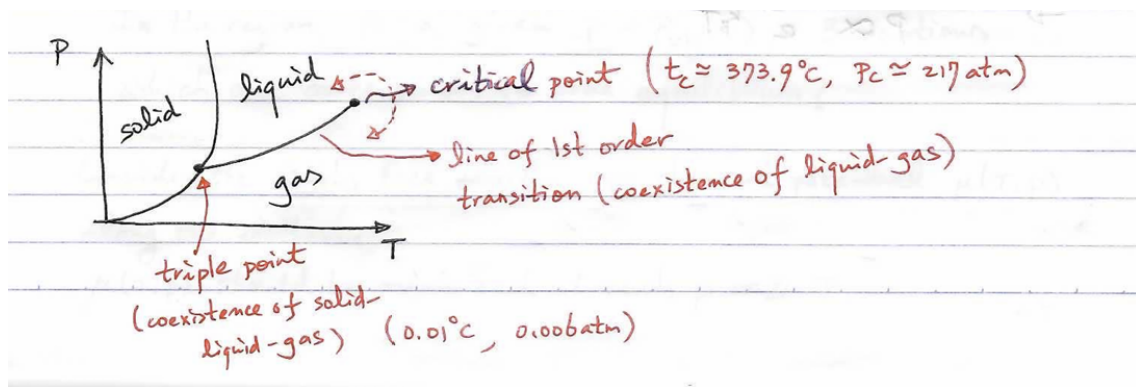 P
solid
liquid
gas
T
critical point (t_c ≃ 373.9°C, P_c ≃ 217 atm)
line of 1st order
transition (coexistence of liquid-gas)
triple point
(coexistence of solid-
liquid-gas) (0.01°C, 0.006 atm)